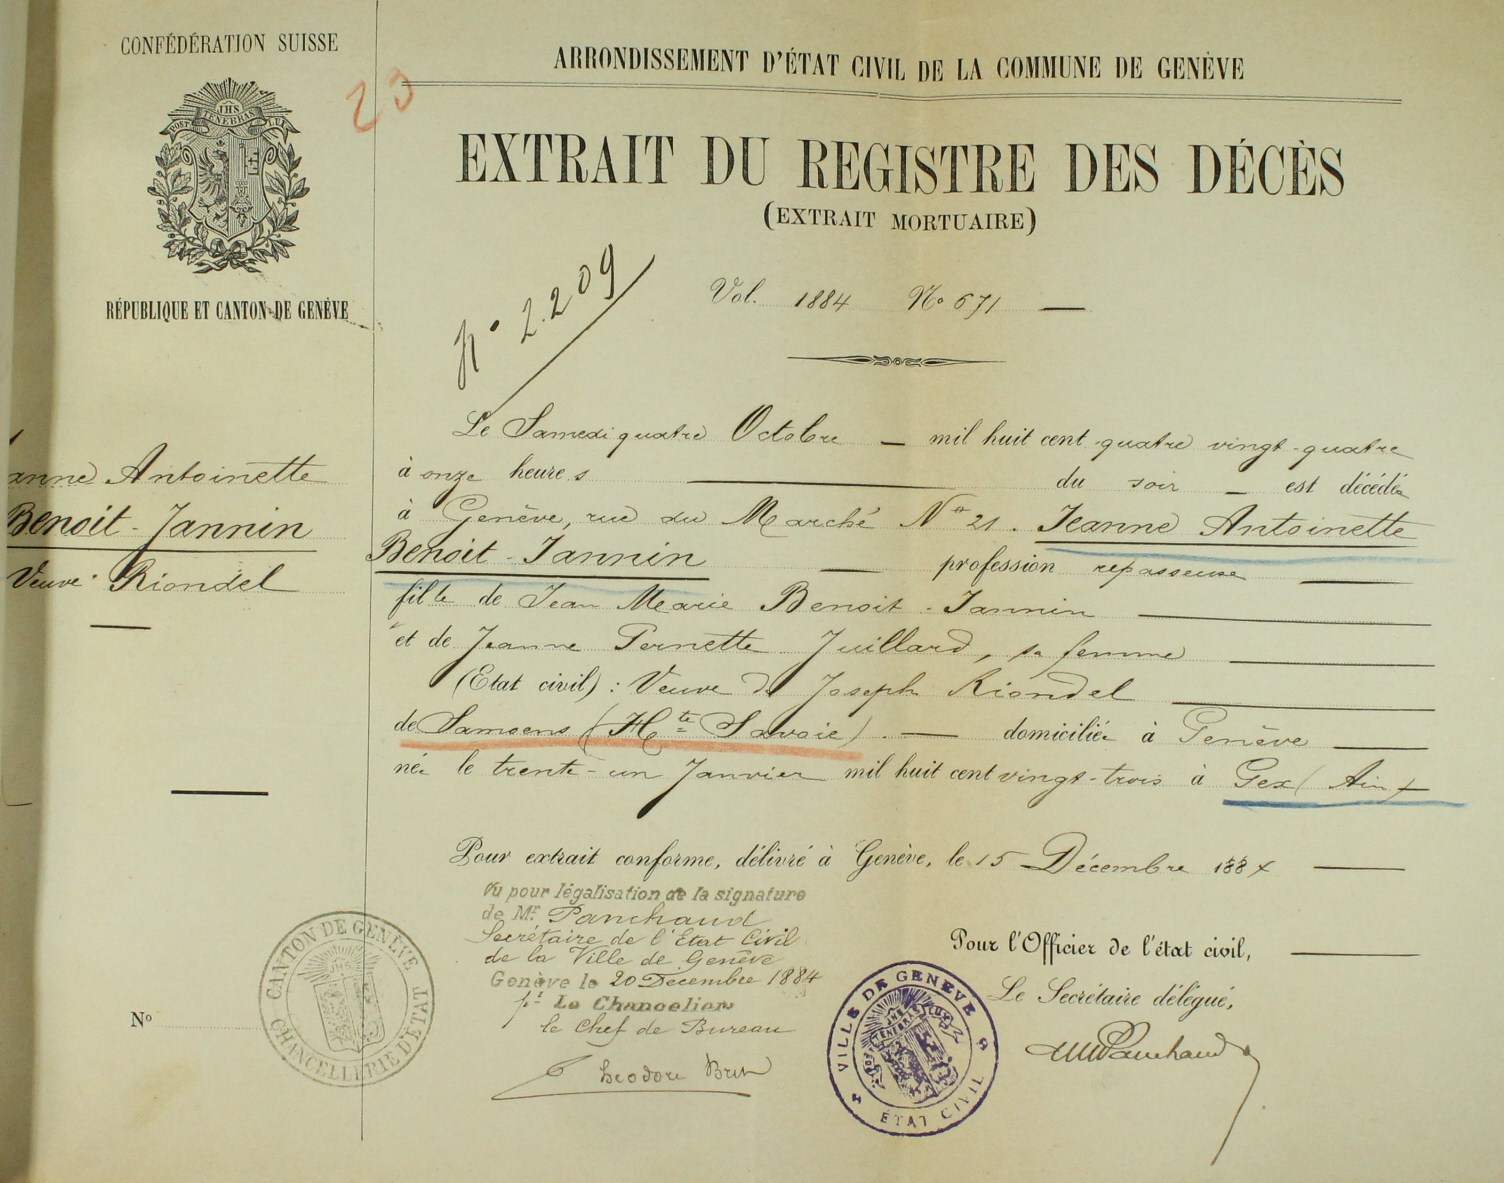 CONFÉDÉRATION SUISSE
POST TENEBRAS LUX
JHS
RÉPUBLIQUE ET CANTON DE GENÈVE
23
ARRONDISSEMENT D'ÉTAT CIVIL DE LA COMMUNE DE GENÈVE
EXTRAIT DU REGISTRE DES DÉCÈS
(EXTRAIT MORTUAIRE)
No 2.209
Vol. 1884 No 671
anne Antoinette
Benoit-Jannin
Veuve Riondel
Le Samedi quatre Octobre mil huit cent quatre vingt-quatre
à onze heures du soir est décédée
à Genève, rue du Marché No 21. Jeanne Antoinette
Benoit-Jannin profession repasseuse
fille de Jean Marie Benoit-Jannin
et de Jeanne Pernette Juillard, sa femme
(Etat civil) : Veuve de Joseph Riondel
de Samoens (Hte Savoie). domiciliée à Genève
née le trente-un Janvier mil huit cent vingt-trois à Gex (Ain)
Pour extrait conforme, délivré à Genève, le 15 Décembre 1884
Vu pour légalisation de la signature
de Mr. Panchaud
Secrétaire de l'Etat Civil
de la Ville de Genève
Genève le 20 Décembre 1884
pr. Le Chancelier
le Chef de Bureau
Theodore Bret
Pour l'Officier de l'état civil,
Le Secrétaire délégué,
Panchaud
CANTON DE GENÈVE
CHANCELLERIE D'ÉTAT
VILLE DE GENÈVE
ÉTAT CIVIL
No